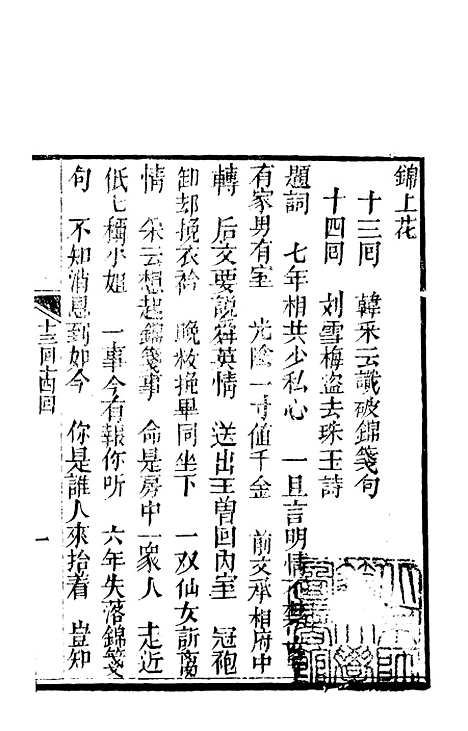 錦上花
十三囘　韓采云識破錦箋句
十四囘　刘雪梅盗去珠玉詩
題詞　七年相共少私心　一旦言明情不禁
有家男有室　光陰一寸値千金　前文承相府中
轉　后文要說舜英情　送出王曽回內室　冠袍
卸却挽衣衿　晚敉挽畢同坐下　一双仙女訴离
情　采云想起錦箋事　命是房中一衆人　走近
低七稱小姐　一事今有報你听　六年失落錦箋
句　不知消息到如今　你是誰人來抬着　豈知
十三囘十四囘　一